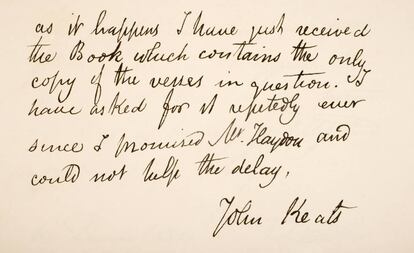 as it happens I have just received
the Book which contains the only
copy of the verses in question. I
have asked for it repetedly ever
since I promised Mr. Haydon and
could not help the delay,
John Keats